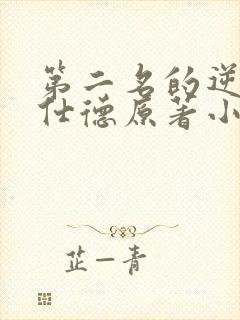 第二名的逆
仕德原著小
芷一青